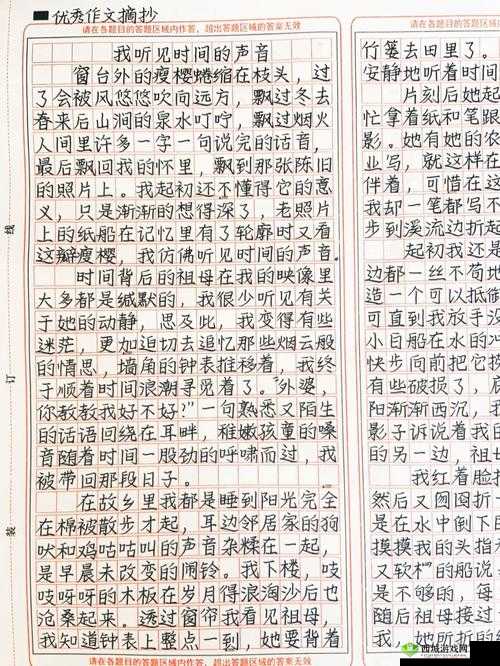 优秀作文摘抄
请在各题目的答题区域内作答，超出答题区域的答案无效
我听见时间的声音
窗台外的瘦樱蜷缩在枝头，过
了会被风悠悠吹向远方，飘过冬去
春来后山涧的泉水叮咛，飘过烟火
人间里许多一字一句说完的话音，
最后飘回我的怀里，飘到那张陈旧
的照片上。我起初还不懂得它的意
义，只是渐渐的想得深了，老照片
上的纸船在记忆里有了轮廓时又看
这瓣瘦樱，我仿佛听见时间的声音。
时间背后的祖母在我的映像里
大多都是缄默的，我很少听见有关
于她的动静，思及此，我变得有些
迷茫，更加迫切去追忆那些烟云般
的情思，墙角的钟表推移着，我终
于顺着时间浪潮寻见着了。“外婆，
你教教我好不好？”一句熟悉又陌生
的话语回绕在耳畔，稚嫩孩童的嗓
音随着时间一股劲的呼啸而过，我
被带回那段日子。
在故乡里我都是睡到阳光完全
在棉被散步才起，耳边邻居家的狗
吠和鸡咕咕叫的声音杂糅在一起，
是早晨未改变的闹铃。我下楼，吱
吱呀呀的木板在岁月得浪淘沙后也
沧桑起来。透过窗帘我看见祖母，
我知道钟表上整点一到，她要背着
请在各题目的答题区域内作答，超出答题区域的答案无效
线
订
装
请在各题目的答题区域
竹篓去田里了。
安静地听着时间
片刻后她起
忙拿着纸和笔跟
影。她有她的农
业写，就这样在
伴着，可惜在这
我却一笔都写不
步到溪流边折起
起初我还是
边都一丝不苟地
造一个可以抵御
可直到我放手没
小白船在水的冲
快步向前把它捞
有些破损了，
阳渐渐西沉，我
影子诉说着我的
的另一边，祖
我红着脸
然后又囫囵折
是在水中倒下
摸摸我的头指
又软的船说
是不够的，每
随后祖母接过
我，她所折的
西城游戏网